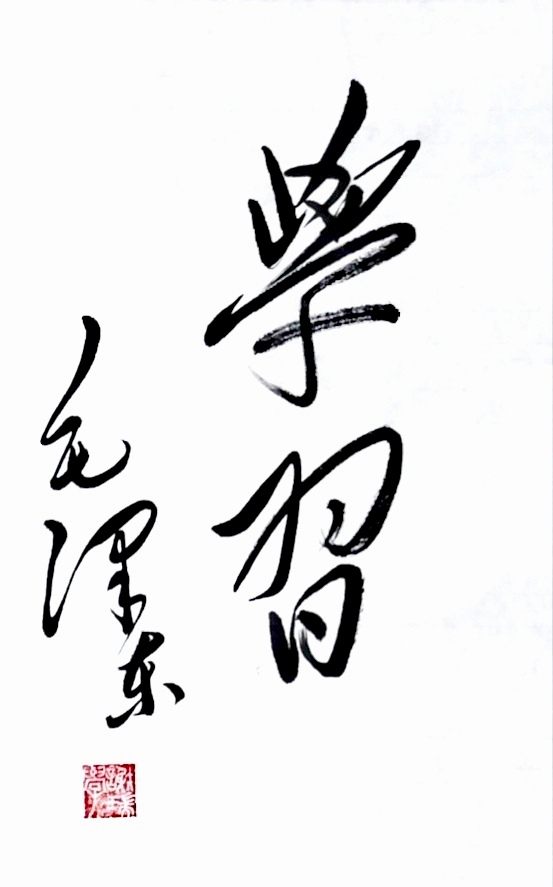 學習
毛澤东